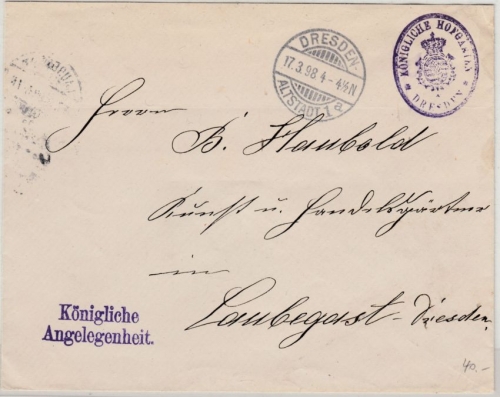 DRESDEN
17.3.98 4-4½N
ALTSTADT 1 a
KÖNIGLICHE HOFGÄRTEN
DRESDEN
Herrn
B. Haubold
Kunst u. Handelsgärtner
in
Laubegast-Dresden.
Königliche
Angelegenheit.
40.-